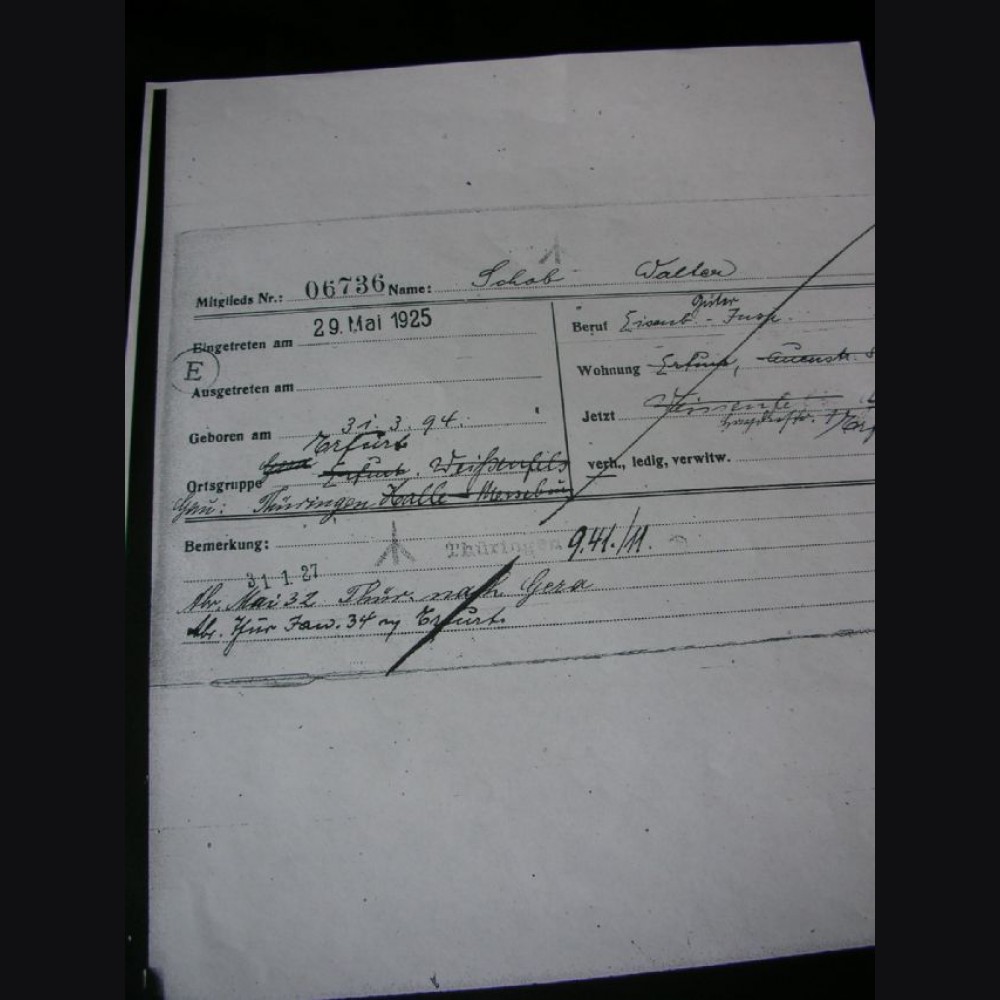 Mitglieds Nr.: 06736 Name: Schob Walter
Eingetreten am 29. Mai 1925
E
Ausgetreten am
Geboren am 31. 3. 94.
Erfurt
Ortsgruppe Gera Erfurt, Weißenfels
Gau: Thüringen Halle-Merseburg
Beruf Eisenb.-Güter Insp.
Wohnung Erfurt, Auenstr.
Jetzt
verh., ledig, verwitw.
Bemerkung: Thüringen 9.41./11.
31 1 27
Mai 32 Thür. nach Gera
34 Erfurt.